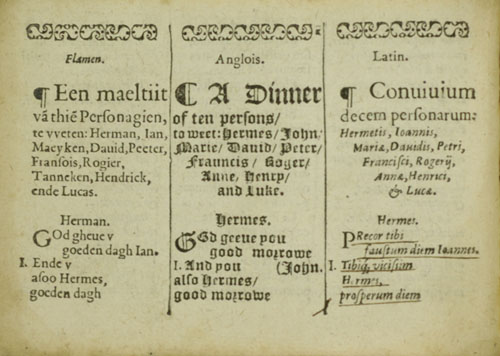 Flamen.
¶ Een maeltiit
vā thiē Personagien,
te vveten: Herman, Ian,
Maeyken, Dauid, Peeter,
Fransois, Rogier,
Tanneken, Hendrick,
ende Lucas.
Herman.
GOd gheue v
goeden dagh Ian.
I. Ende v
alsoo Hermes,
goeden dagh
Anglois.
¶ A Dinner
of ten persons/
to weet: Hermes/ John/
Marie/ Dauid/ Peter/
Frauncis/ Roger/
Anne/ Henry/
and Luke.
Hermes.
GOd geeue you
good morrowe
I. And you (John.
also Hermes/
good morrowe
Latin.
¶ Conuiuium
decem personarum:
Hermetis, Ioannis,
Mariæ, Dauidis, Petri,
Francisci, Rogerij,
Annæ, Henrici,
& Lucæ.
Hermes.
PRecor tibi
faustum diem Ioannes.
I. Tibiq; vicissim
Hermes,
prosperum diem